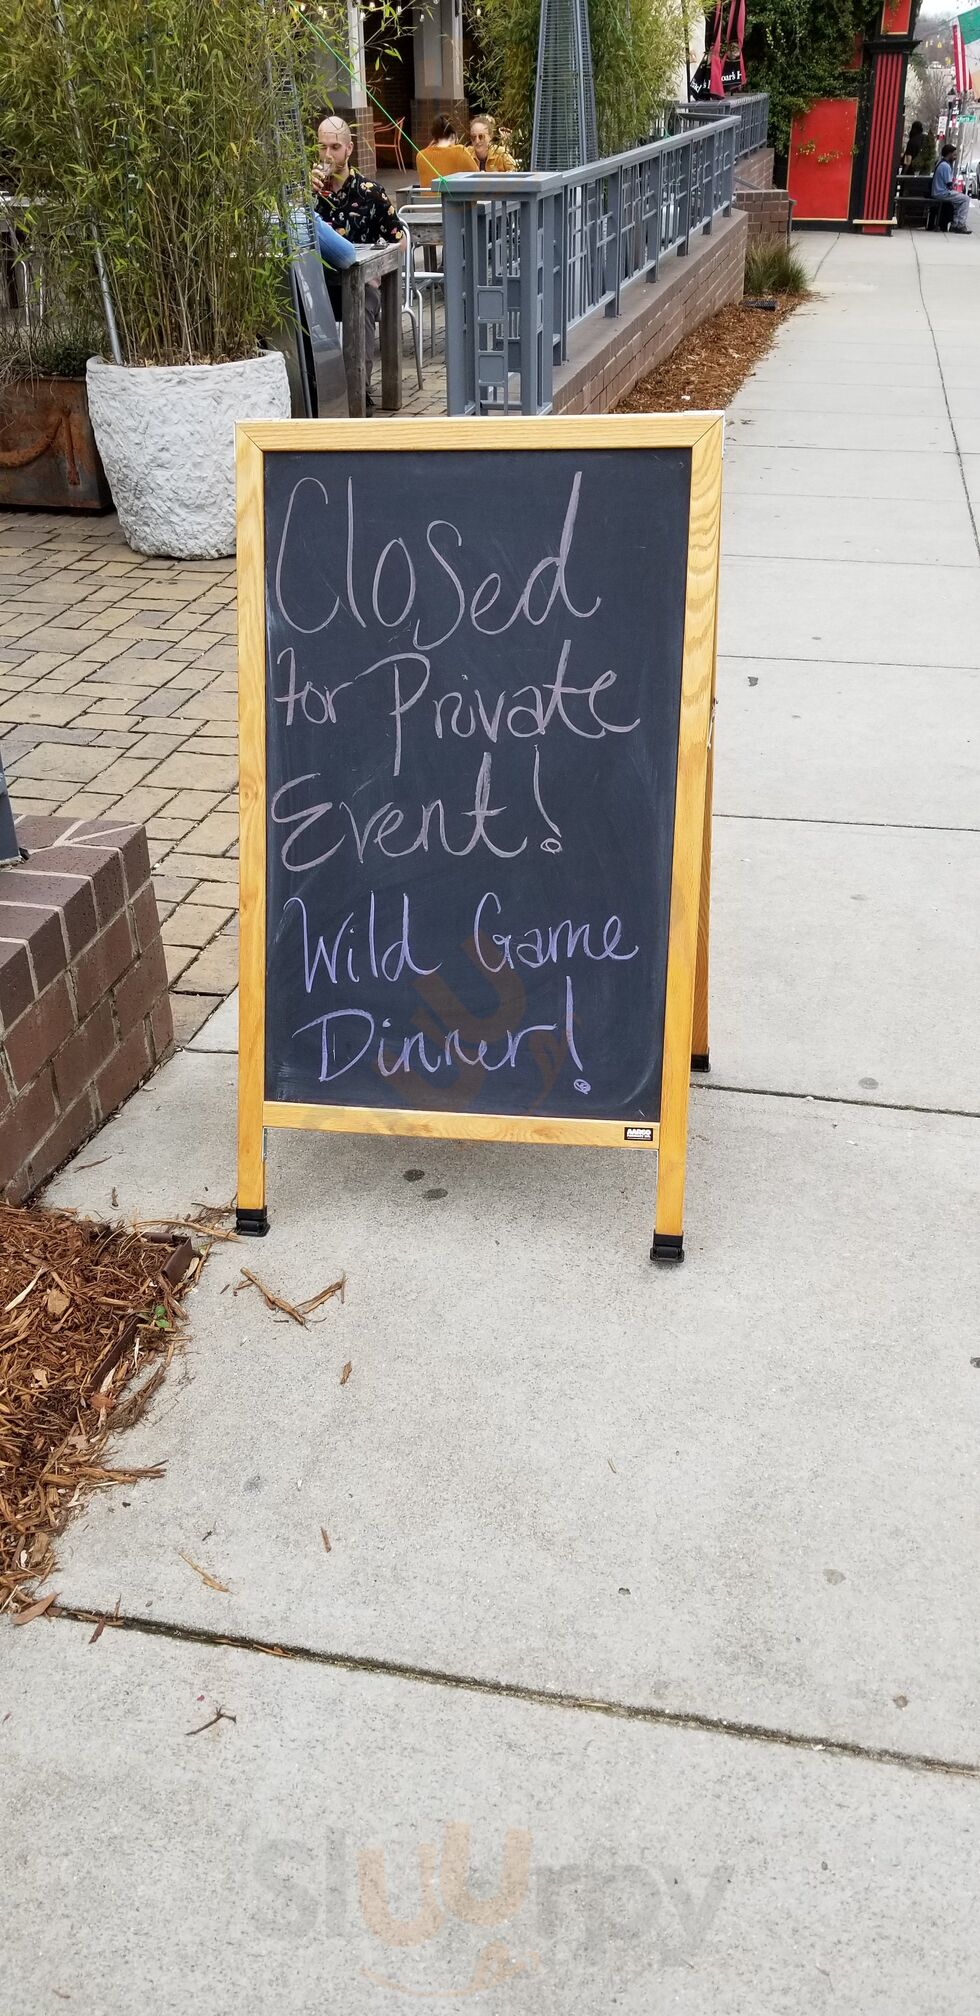 Closed
for Private
Event!
Wild Game
Dinner!
AARCO
Sluurpy